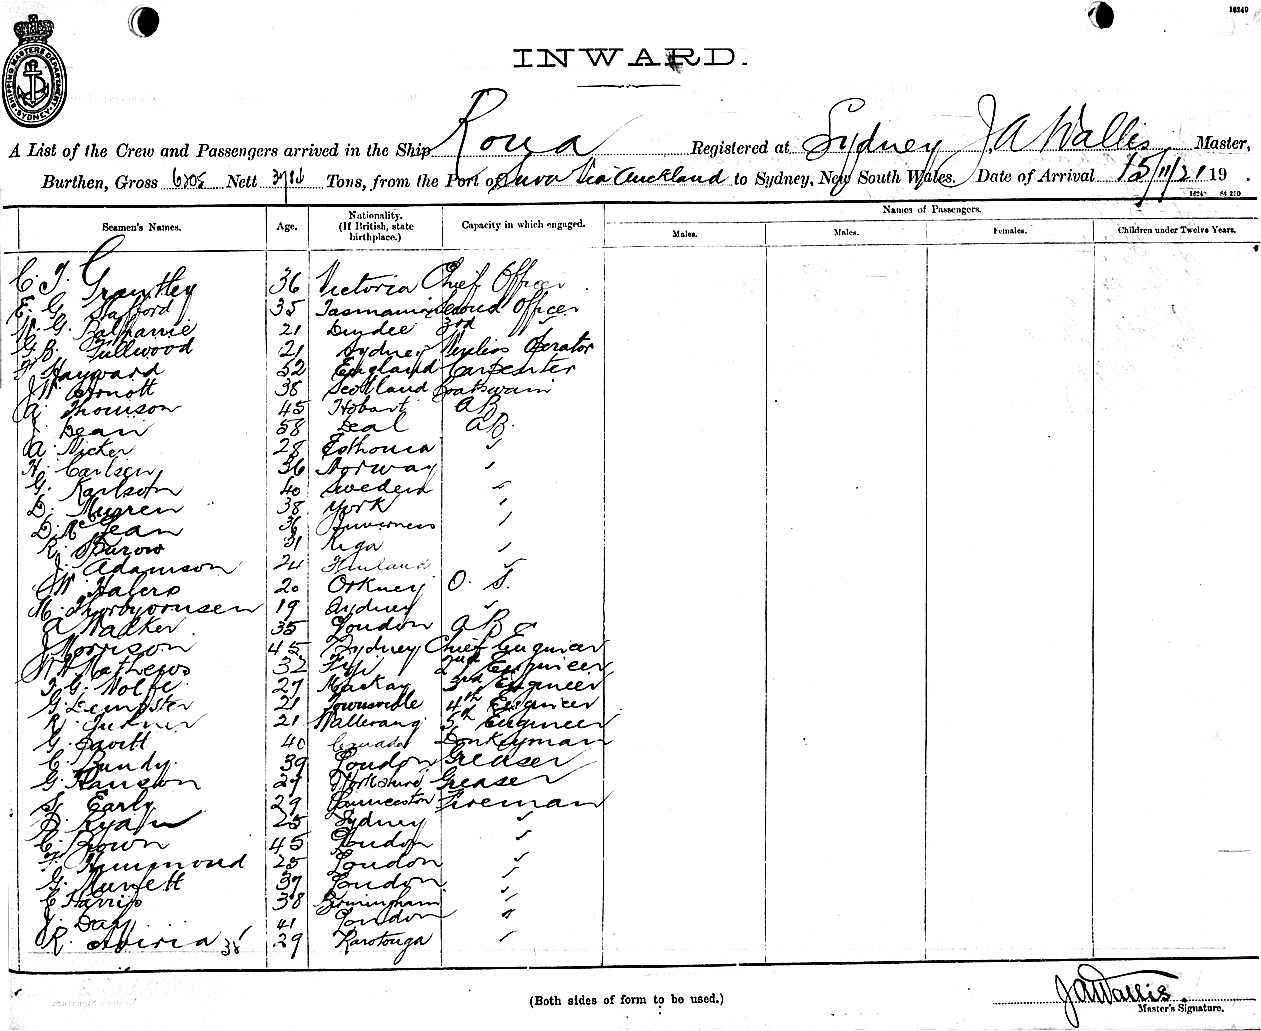 16240
SHIPPING MASTERS DEPARTMENT SYDNEY
INWARD.
A List of the Crew and Passengers arrived in the Ship Roua Registered at Sydney J.A Wallis Master,
Burthen, Gross Nett Tons, from the Port of Suva Via Auckland to Sydney, New South Wales. Date of Arrival 15/11/21 19 .
Seamen's Names. Age. Nationality. (If British, state birthplace.) Capacity in which engaged. Names of Passengers.
Males. Males. Females. Children under Twelve Years.
C. T. Grantley 36 Victoria Chief Officer
E. G. Stafford 35 Tasmania Second Officer
W. G. 21 Dundee 3rd "
G. B. Fullwood 21 Sydney Wireless Operator
F Hayward 52 England Carpenter
J W Arnott 38 Scotland Boatswain
A. Thomson 45 Hobart AB
J. Dean 58 Deal AB.
A. Nicker 28 Esthonia "
H. Carlsen 36 Norway "
G. Karlson 40 Sweden "
D. Mugren 38 York "
D. McLean 36 Inverness "
R. Burow 31 Riga "
J. Adamson 24 Finland "
W. Halcro 20 Orkney O. S.
M. Thorbyornsen 19 Sydney "
A Walker 35 London AB
J Morrison 45 Sydney Chief Engineer
W H Mathews 32 Fiji 2nd Engineer
T. G. Wolfe 27 Mackay 3rd Engineer
G. Dempster 21 Townsville 4th Engineer
R. Turner 21 Wallerang 5th Engineer
G. Davitt 40 Canada Donkeyman
C. Bundy. 39 London Greaser
G. Hanston 27 Yorkshire Greaser
S. Early 29 Launceston Fireman
D. Ryan 25 Sydney "
C. Brown 45 London "
F. Hammond 25 London "
G. Munett 37 London "
C Harris 38 Birmingham "
J. Day 41 London "
R. 38 29 Rarotonga "
(Both sides of form to be used.)
J A Wallis.
Master's Signature.